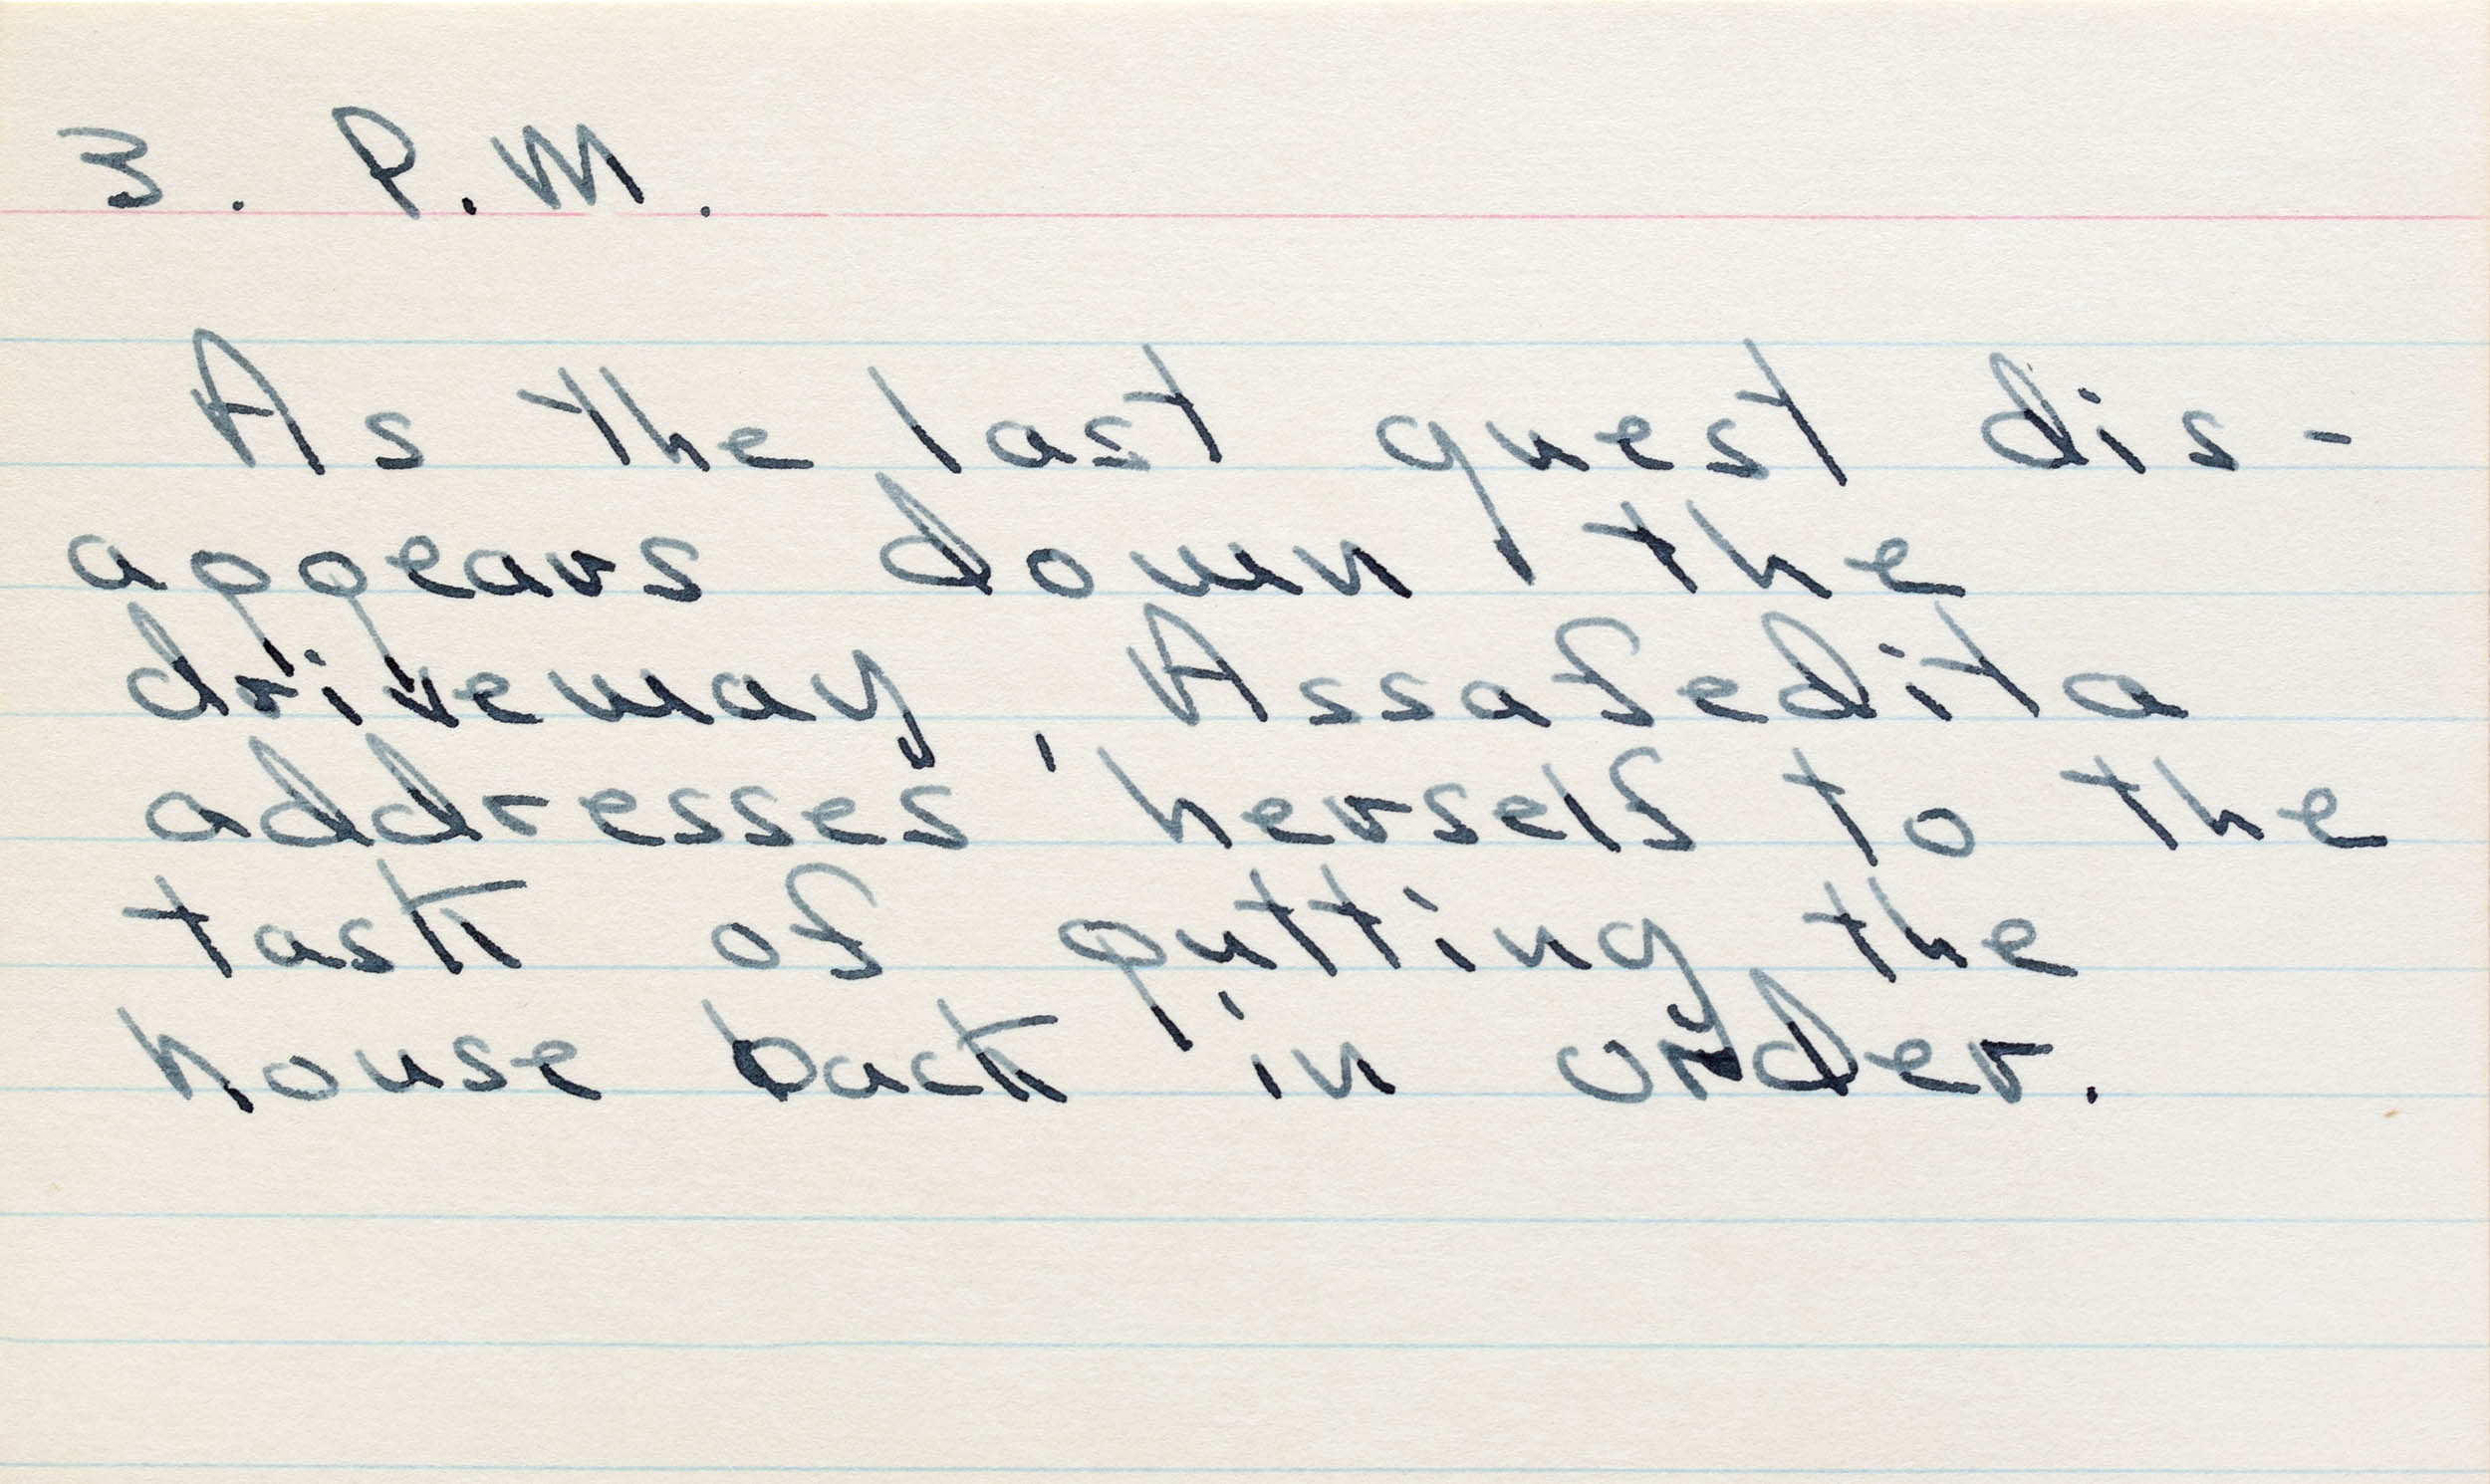 3. P.M.
As the last guest dis-
appears down the
driveway, Assafedita
addresses herself to the
task of putting the
house back in order.